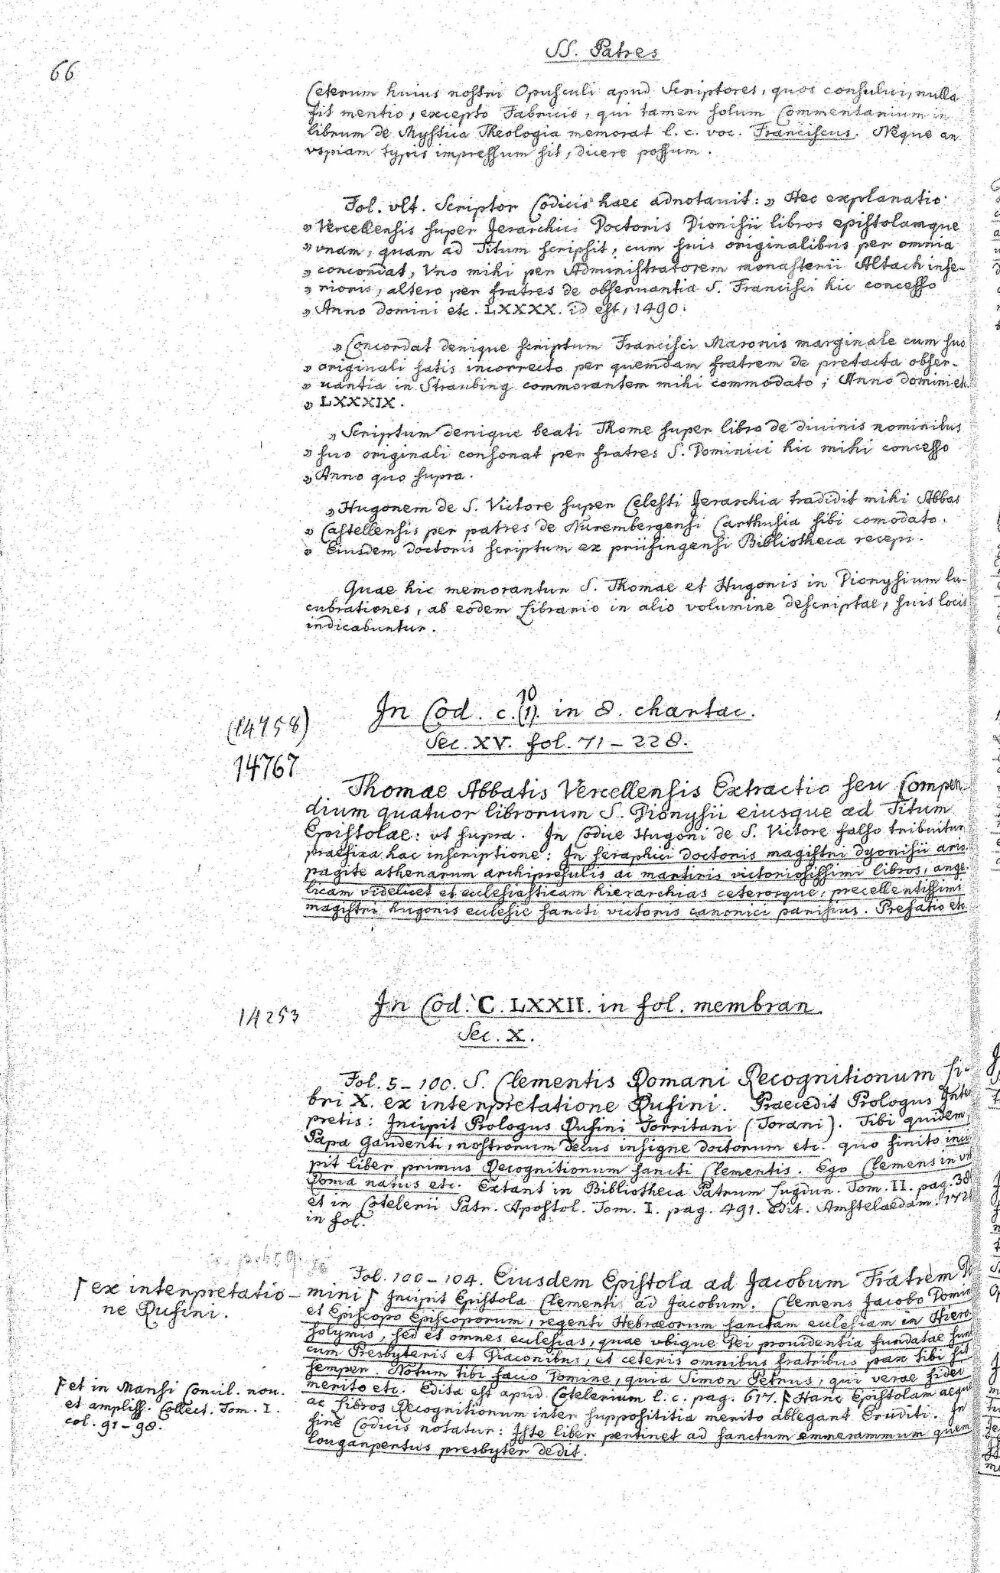 66
SS. Patres
Ceterum huius nostri Opusculi apud Scriptores, quos consului, nulla
fit mentio, excepto Fabricio, qui tamen solum Commentarium in
librum de Mystica Theologia memorat l. c. voc. Franciscus. Neque an
vspiam typis impressum sit, dicere possum.
Fol. vlt. Scriptor Codicis haec adnotavit: „ Hec explanatio
„ Vercellensis super Jerarchici Doctoris Dionisii libros epistolamque
„ vnam, quam ad Titum scripsit, cum suis originalibus per omnia
„ concordat, vno mihi per Administratorem monasterii Altach infe-
„ rioris, altero per fratres de obseruantia S. Francisci hic concesso
„ Anno domini etc. LXXXX. id est, 1490.
„ Concordat denique scriptum Francisci Maronis marginale cum suo
„ originali satis incorrecto per quemdam fratrem de pretacta obser-
„ uantia in Straubing commorantem mihi commodato; Anno domini etc.
„ LXXXIX.
„ Scriptum denique beati Thome super libro de diuinis nominibus
„ suo originali consonat per fratres S. Dominici hic mihi concesso
„ Anno quo supra.
„ Hugonem de S. Victore super Celesti Jerarchia tradidit mihi Abbas
„ Castellensis per patres de Nurembergensi Carthusia sibi comodato.
„ Eiusdem doctoris scriptum ex priifingensi Bibliotheca recepi.
Quae hic memorantur S. Thomae et Hugonis in Dionysium lu-
cubrationes, ab eodem Librario in alio volumine descriptae, suis locis
indicabuntur.
10
In Cod. c. (1). in 8. chartac.
(14758)
Sec. XV. fol. 71-228.
14767
Thomae Abbatis Vercellensis Extractio seu Compen-
dium quatuor librorum S. Dionysii eiusque ad Titum
Epistolae: ut supra. In Codice Hugoni de S. Victore falso tribuitur
praefixa hac inscriptione: In seraphici doctoris magistri dyonisii ario
pagite athenarum archipresulis ac martiris victoriosissimi libros, ange
licam videlicet et ecclesiasticam hierarchias ceterosque, precellentissimi
magistri hugonis ecclesie sancti victoris canonici parisius. Prefatio etc
In Cod. C. LXXII. in fol. membran.
14253
Sec. X.
Fol. 5-100. S. Clementis Romani Recognitionum Li-
bri X. ex interpretatione Rufini. Praecedit Prologus Inter
pretis: Incipit Prologus Rufini Torritani (Torani). Tibi quidem,
Papa Gaudenti, nostrorum decus insigne doctorum etc. quo finito inci
pit liber primus Recognitionum sancti Clementis. Ego Clemens in vr
Roma natus etc. Extant in Bibliotheca Patrum Lugdun. Tom. II. pag. 38
et in Cotelerii Patr. Apostol. Tom. I. pag. 491. Edit. Amstelaedam. 172
in fol.
Fol. 100-104. Eiusdem Epistola ad Jacobum Fratrem Do
⌈ ex interpretatio-
ne Rufini.
mini ⌈ Incipit Epistola Clementis ad Jacobum. Clemens Jacobo Domino
et Episcopo Episcoporum, regenti Hebraeorum sanctam ecclesiam in Hiero
solymis, sed et omnes ecclesias, quae ubique Dei providentia fundatae sunt
cum Presbyteris et Diaconibus, et ceteris omnibus fratribus pax tibi sit
semper. Notum tibi facio Domine, quia Simon Petrus, qui verae fidei
merito etc. Edita est apud Cotelerium l. c. pag. 617. ⌈ Hanc Epistolam aeque
ac Libros Recognitionum inter supposititia merito ablegant Eruditi. In
fine Codicis notatur: Iste liber pertinet ad sanctum emmerammum quem
louganpertus presbyter dedit.
⌈ et in Mansi Concil. nou.
et ampliss. Collect. Tom. I.
col. 91-98.